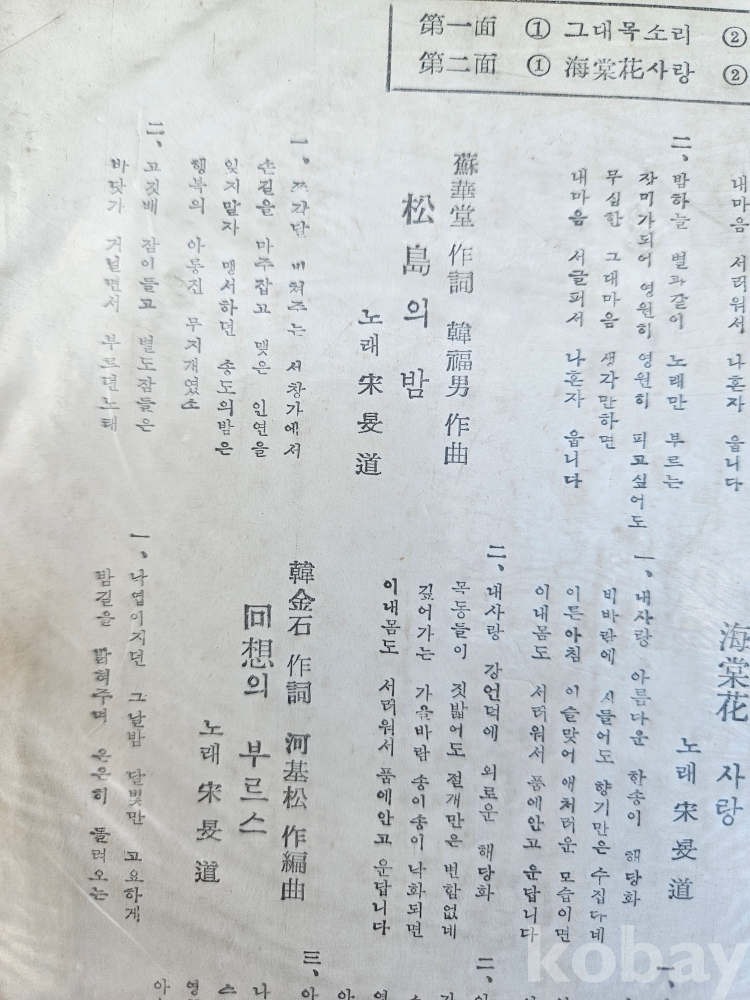 第一面 ① 그대목소리 ②
第二面 ① 海棠花사랑 ②
내마음 서러워서 나혼자 웁니다
二、밤하늘 별과같이 노래만 부르는
장미가되어 영원히 영원히 피고싶어도
무심한 그대마음 생각만하면
내마음 서글퍼서 나혼자 웁니다
蘇華堂 作詞 韓福男 作曲
松島의 밤
노래 宋旻道
一、쪼각달 비쳐주는 서창가에서
손길을 마주잡고 맺은 인연을
잊지말자 맹서하던 송도의밤은
행복의 아롱진 무지개였소
二、고깃배 잠이들고 별도잠들은
바닷가 거닐면서 부르던노래
海棠花 사랑
노래 宋旻道
一、내사랑 아름다운 한송이 해당화
비바람에 시들어도 향기만은 수집다네
이른아침 이슬맞어 애처러운 모습이면
이내몸도 서러워서 품에안고 운답니다
二、내사랑 강언덕에 외로운 해당화
목동들이 짓밟어도 절개만은 변함없네
깊어가는 가을바람 송이송이 낙화되면
이내몸도 서러워서 품에안고 운답니다
韓金石 作詞 河基松 作編曲
回想의 부르스
노래 宋旻道
一、낙엽이지던 그날밤 달빛만 고요하게
밤길을 밝혀주며 은은히 들려오는
一、
二、
三、
kobay